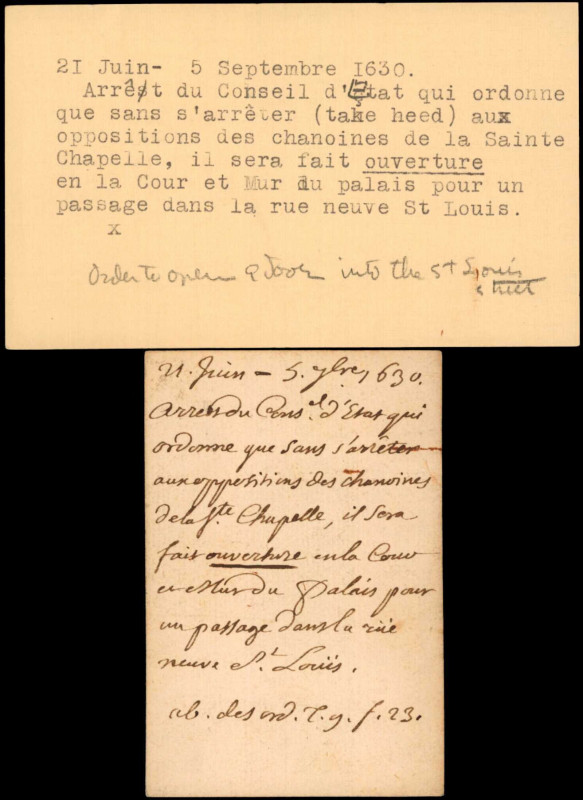 21 Juin- 5 Septembre 1630.
Arrêt du Conseil d'Etat qui ordonne
que sans s'arrêter (take heed) aux
oppositions des chanoines de la Sainte
Chapelle, il sera fait ouverture
en la Cour et Mur du palais pour un
passage dans la rue neuve St Louis.
x
Order to open a door into the St Louis
street
21. Juin – 5. 7bre, 1630.
Arrest du Cons.el d'Etat qui
ordonne que sans s'arrêter
aux oppositions des chanoines
de la Ste. Chapelle, il sera
fait ouverture en la Cour
et Mur du Palais pour
un passage dans la rüe
neuve St. Loüis.
ab. des ord. T. 9. f. 23.